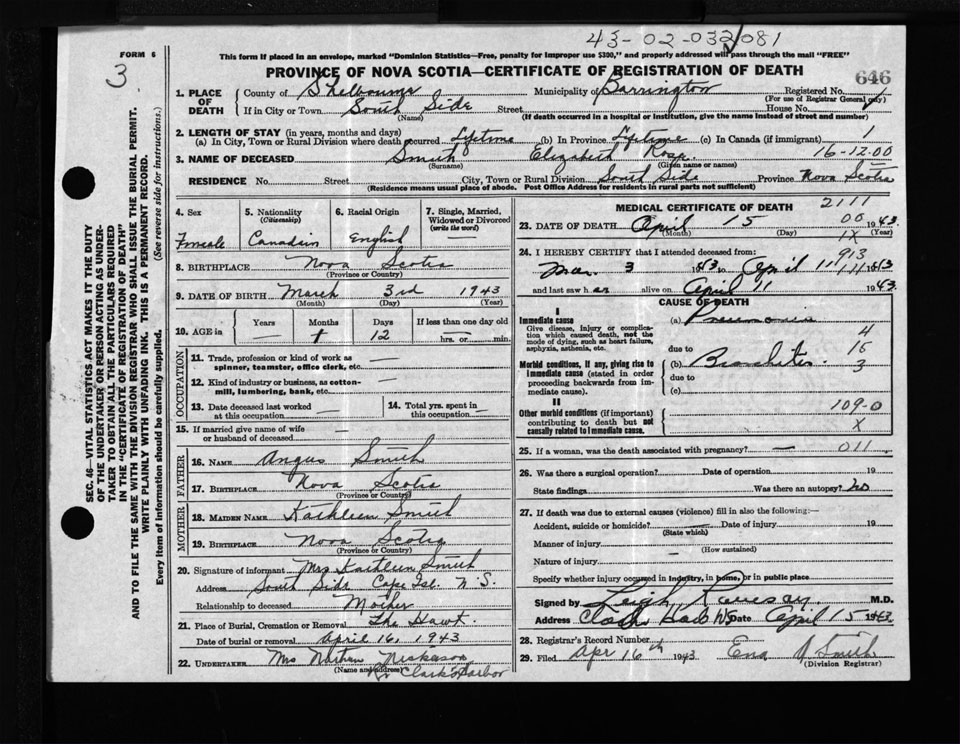 43-02-032081
FORM 6
3
This form if placed in an envelope, marked "Dominion Statistics—Free, penalty for improper use $300," and properly addressed will pass through the mail "FREE"
PROVINCE OF NOVA SCOTIA—CERTIFICATE OF REGISTRATION OF DEATH
646
1. PLACE OF DEATH County of Shelburne Municipality of Barrington Registered No.
(For use of Registrar General only)
If in City or Town South Side Street House No.
(Name) (If death occurred in a hospital or institution, give the name instead of street and number)
2. LENGTH OF STAY (in years, months and days)
(a) In City, Town or Rural Division where death occurred Lifetime (b) In Province Lifetime (c) In Canada (if immigrant) 1
3. NAME OF DECEASED Smith Elizabeth Rose 16-12-00
(Surname) (Given name or names)
RESIDENCE No. Street City, Town or Rural Division South Side Province Nova Scotia
(Residence means usual place of abode. Post Office Address for residents in rural parts not sufficient)
SEC. 46—VITAL STATISTICS ACT MAKES IT THE DUTY
OF THE UNDERTAKER OR PERSON ACTING AS UNDERTAKER
TO OBTAIN ALL THE PARTICULARS REQUIRED
IN THE "CERTIFICATE OF REGISTRATION OF DEATH"
AND TO FILE THE SAME WITH THE DIVISION REGISTRAR WHO SHALL ISSUE THE BURIAL PERMIT.
WRITE PLAINLY WITH UNFADING INK. THIS IS A PERMANENT RECORD.
Every item of information should be carefully supplied. (See reverse side for instructions.)
4. Sex 5. Nationality (Citizenship) 6. Racial Origin 7. Single, Married, Widowed or Divorced (write the word)
Female Canadian English —
8. BIRTHPLACE Nova Scotia
(Province or Country)
9. DATE OF BIRTH March 3rd 1943
(Month) (Day) (Year)
10. AGE in Years Months Days If less than one day old
— 1 12 hrs. or min.
OCCUPATION
11. Trade, profession or kind of work as spinner, teamster, office clerk, etc. —
12. Kind of industry or business, as cotton-mill, lumbering, bank, etc. —
13. Date deceased last worked at this occupation — 14. Total yrs. spent in this occupation —
15. If married give name of wife or husband of deceased —
FATHER
16. NAME Angus Smith
17. BIRTHPLACE Nova Scotia
(Province or Country)
MOTHER
18. MAIDEN NAME Kathleen Smith
19. BIRTHPLACE Nova Scotia
(Province or Country)
20. Signature of informant Mrs Kathleen Smith
Address South Side Cape Isl. N.S.
Relationship to deceased Mother
21. Place of Burial, Cremation or Removal The Hawk.
Date of burial or removal April 16, 1943
22. UNDERTAKER Mrs Nathan Nickerson
(Name and address) Clark's Harbor
MEDICAL CERTIFICATE OF DEATH 2111
23. DATE OF DEATH April 15 00 1943
(Month) (Day) 1X (Year)
24. I HEREBY CERTIFY that I attended deceased from: 913
Mar 3 1943 to April 11, 111 1943
and last saw h er alive on April 11 1943.
CAUSE OF DEATH
I
Immediate cause (a) Pneumonia
Give disease, injury or complication which caused death, not the mode of dying, such as heart failure, asphyxia, asthenia, etc.
4
due to 15
Morbid conditions, if any, giving rise to immediate cause (stated in order proceeding backwards from immediate cause).
(b) Bronchitis 3
due to
(c)
II
Other morbid conditions (if important) contributing to death but not causally related to immediate cause.
109-0
X
25. If a woman, was the death associated with pregnancy? — 011
26. Was there a surgical operation? Date of operation 19
State findings Was there an autopsy? no
27. If death was due to external causes (violence) fill in also the following:—
Accident, suicide or homicide? Date of injury 19
(State which)
Manner of injury
(How sustained)
Nature of injury —
Specify whether injury occurred in industry, in home, or in public place
Signed by Leigh Ramsay M.D.
Address Clark Harb NS Date April 15 1943
28. Registrar's Record Number 1
29. Filed Apr 16th 1943 Ena Smith
(Division Registrar)